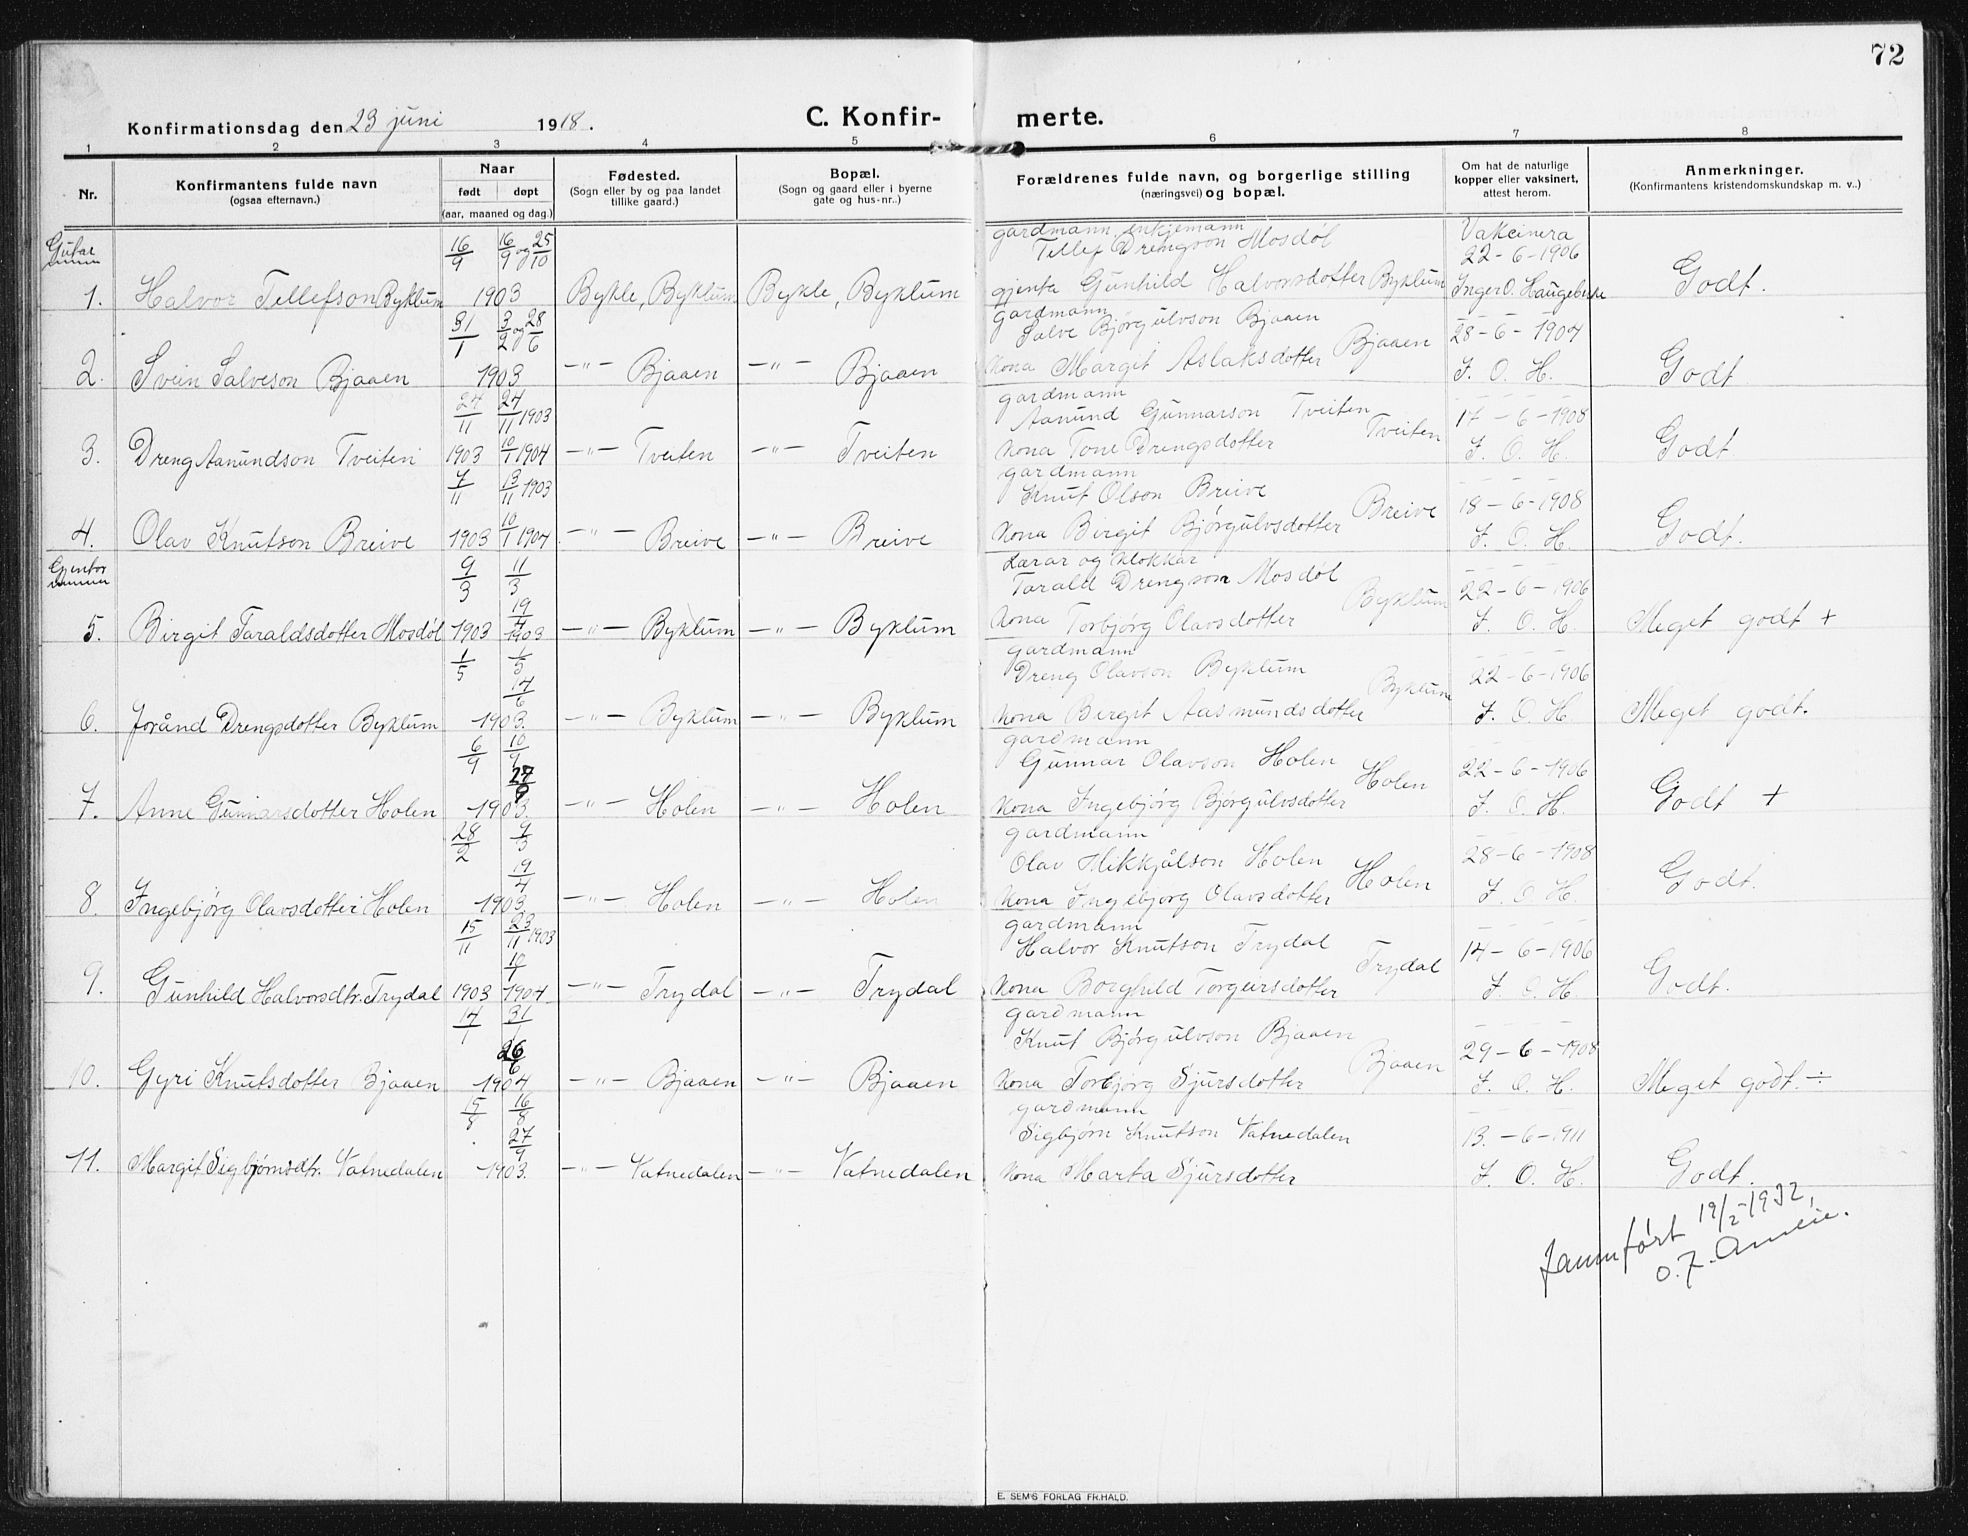 72
Konfirmationsdag den 23 juni 1918.
C. Konfir- merte.
1 2 3 4 5 6 7 8
Nr.
Konfirmantens fulde navn
(ogsaa efternavn.)
Naar
født døpt
(aar, maaned og dag.)
Fødested.
(Sogn eller by og paa landet
tillike gaard.)
Bopæl.
(Sogn og gaard eller i byerne
gate og hus-nr..)
Forældrenes fulde navn, og borgerlige stilling
(næringsvei) og bopæl.
Om hat de naturlige
kopper eller vaksinert,
attest herom.
Anmerkninger.
(Konfirmantens kristendomskundskap m. v..)
Gutar
16/9 16/9 og 25/10 gardmann, enkjemann Vakcinera
Tellef Drengson Mosdøl 22-6-1906
1. Halvor Tellefson Byklum 1903 Bykle, Byklum Bykle, Byklum gjenta Gunhild Halvorsdotter Byklum Inger O. Haugeberke Godt.
31/1 3/2 og 28/6 gardmann
Salve Bjørgulvson Bjaaen 28-6-1904
2. Svein Salveson Bjaaen 1903 -"- Bjaaen -"- Bjaaen kona Margit Aslaksdotter Bjaaen I. O. H. Godt
24/11 24/11 1903 gardmann
Aanund Gunnarson Tveiten 17-6-1908
3. Dreng Aanundson Tveiten 1903 10/1 1904 -"- Tveiten -"- Tveiten kona Tone Drengsdotter Tveiten I. O. H. Godt
7/11 13/11 1903 gardmann
Knut Olson Breive 18-6-1908
4. Olav Knutson Breive 1903 10/1 1904 -"- Breive -"- Breive kona Birgit Bjørgulvsdotter Breive I. O. H. Godt.
Gjentor
9/3 11/3 Lærar og klokkar
Tarald Drengson Mosdøl 22-6-1906
5. Birgit Taraldsdotter Mosdøl 1903 19/4 1903 -"- Byklum -"- Byklum kona Torbjørg Olavsdotter Byklum I. O. H. Meget godt +
1/5 1/5 gardmann
Dreng Olavson Byklum 22-6-1906
6. Jorånd Drengsdotter Byklum 14/6 1903. -"- Byklum -"- Byklum kona Birgit Aasmundsdotter Byklum I. O. H. Meget godt.
6/9 10/9 gardmann
Gunnar Olavson Holen 22-6-1906
7. Anne Gunnarsdotter Holen 27/9 1903. -"- Holen -"- Holen kona Ingebjørg Bjørgulvsdotter Holen I. O. H. Godt +
28/2 9/3 gardmann
Olav Mikkjålson Holen 28-6-1908
8. Ingebjørg Olavsdotter Holen 19/4 1903. -"- Holen -"- Holen kona Ingebjørg Olavsdotter Holen I. O. H. Godt.
15/11 23/11 1903 gardmann
Halvor Knutson Trydal 14-6-1906
9. Gunhild Halvorsdtr. Trydal 1903 10/1 1904 -"- Trydal -"- Trydal kona Borghild Torgursdotter Trydal I. O. H Godt.
14/1 31/1 gardmann
Knut Bjørgulvson Bjaaen 29-6-1908
10. Gyri Knutsdotter Bjaaen 26/6 1904 -"- Bjaaen -"- Bjaaen kona Torbjørg Sjursdotter Bjaaen I. O. H. Meget godt. ÷
15/8 16/8 gardmann
Sigbjørn Knutson Vatnedalen 13.-6-1911
11. Margit Sigbjørnsdtr. Vatnedalen 27/9 1903. -"- Vatnedalen -"- Vatnedalen kona Marta Sjursdotter I. O. H. Godt.
Jamnført 19/2-1932,
O. J.
E. SEM'S FORLAG FR.HALD.